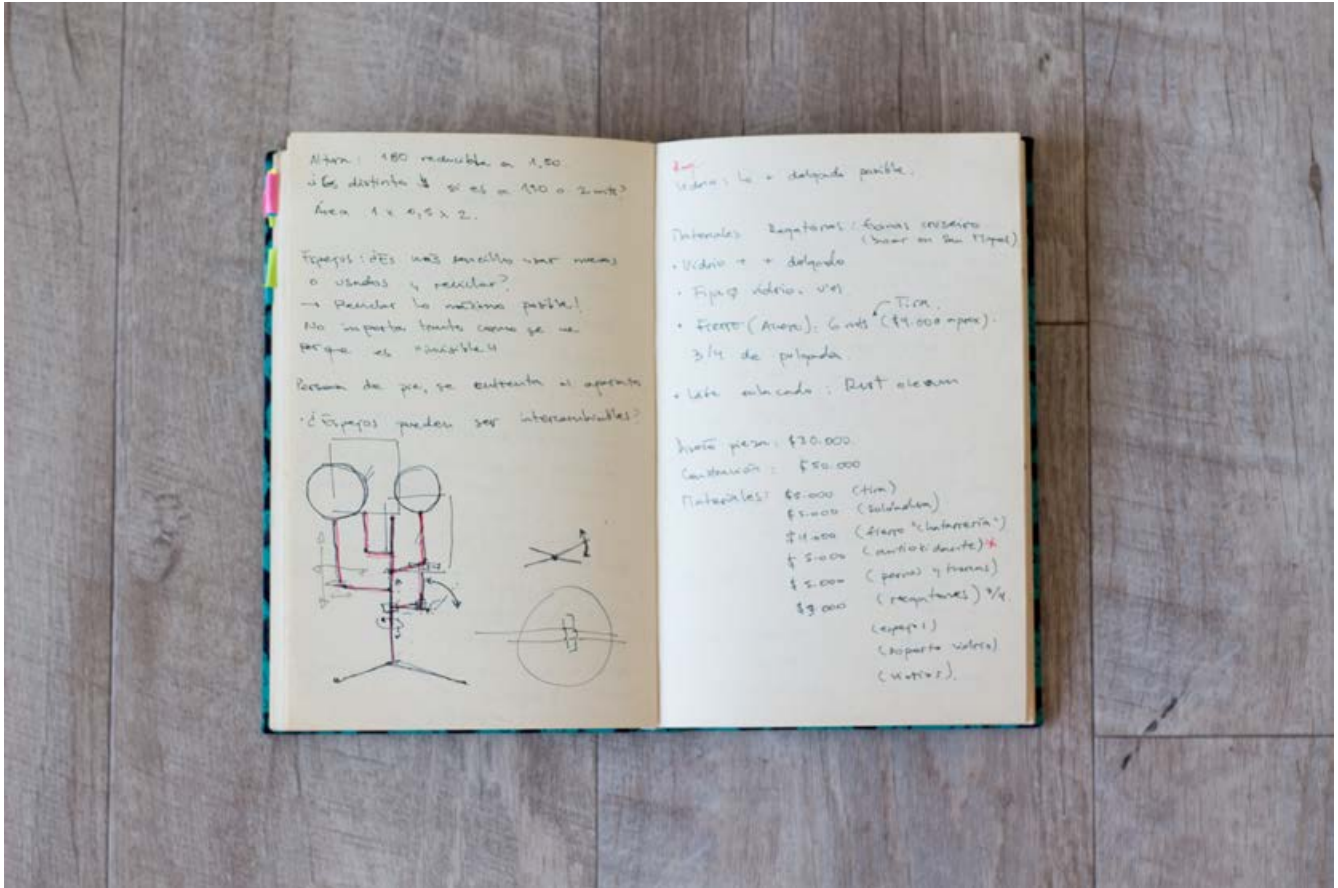 Altura: 180 reducible a 1,50.
¿Es distinto $ si es a 1,90 o 2 mts?
Área: 1 x 0,5 x 2.
Espejos: ¿Es más sencillo usar nuevos
o usados y reciclar?
→ Reciclar lo máximo posible!
No importa tanto como se ve
porque es "invisible"
Persona de pie, se enfrenta al aparato
· ¿Espejos pueden ser intercambiables?
Vidrio: lo + delgado posible.
Materiales Regatones: frenos
(buscar en San Miguel)
· Vidrio + delgado
· vidrio.
Tira
· Fierro (Acero): 6 mts ($4.000 aprox).
3/4 de pulgada
· Rust oleum
Diseño pieza: $30.000.
Construcción: $50.000
Materiales: $5.000 (tira)
$5.000 (soldadura)
$4.000 (fierro "chatarrería")
$5.000 (antioxidante) *
$5.000 (pernos y tuercas)
$3.000 (regatones) 3/4.
(espejos)
(soporte vidrio)
(vidrios).